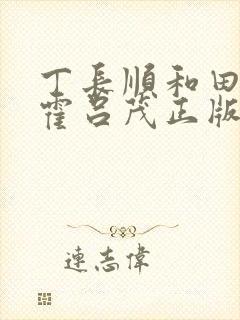 丁長順和田
霍呂茂正版
連志偉